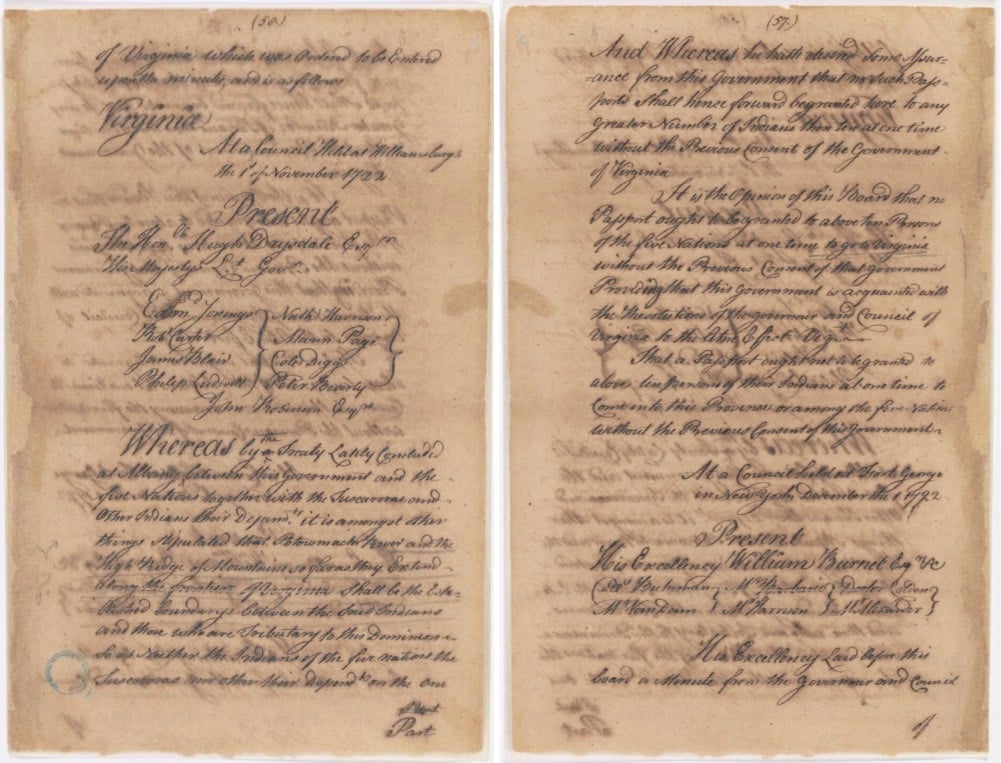 (58.)
of Virginia which was Ordered to be Entered
upon the minutes and is as follows
Virginia
At a Council Held at Williamsburgh
the 1st of November 1722
Present
The Honble Hugh Drysdale Esqr
His Majestys Lt Govr
Edm Jenings Nathl Harrison
Robt Carter Mann Page
James Blair Cole Digg
Philip Ludwell Peter Beverly
John Robinson Esqrs
Whereas by the Treaty Lately Concluded
at Albany between this Government and the
five Nations together with the Tuscaroras and
Other Indians their Dependts it is amongst other
things stipulated that Potowmack River and the
High Ridge of Mountains so far as they Extend
along the frontiers of Virginia Shall be the Esta-
blished Boundarys between the Said Indians
and those who are Tributary to this Dominion
So as Neither the Indians of the five nations the
Tuscaroras nor other their Dependts on the One
Part
Part
(57.)
And Whereas he hath desired Some Assur-
-ance from this Government that no Such Pass-
ports Shall hence forward be granted here to any
Greater Number of Indians then ten at one time
without the Previous Consent of the Government
of Virginia
It is the Opinion of this Board that no
Passport ought to be granted to above ten Persons
of the five Nations at one time to go to Virginia
without the Previous Consent of that Government
Provided that this Government is acquainted with
the Resolutions of the governour and Council of
Virginia to the like Effect Vizt
That a Passport ought not to be granted to
above ten persons of their Indians at one time to
Come into this Province or among the five Nations
without the Previous Consent of this Government
At a Council held at Fort George
in New York December the 1 1722
Present
His Excellency William Burnet Esqr &c
Mr Harison
Mr Van Dam Doctor Colden
Mr Alexander
His Excellency Laid before this
board a Minute from the Governour and Council
of